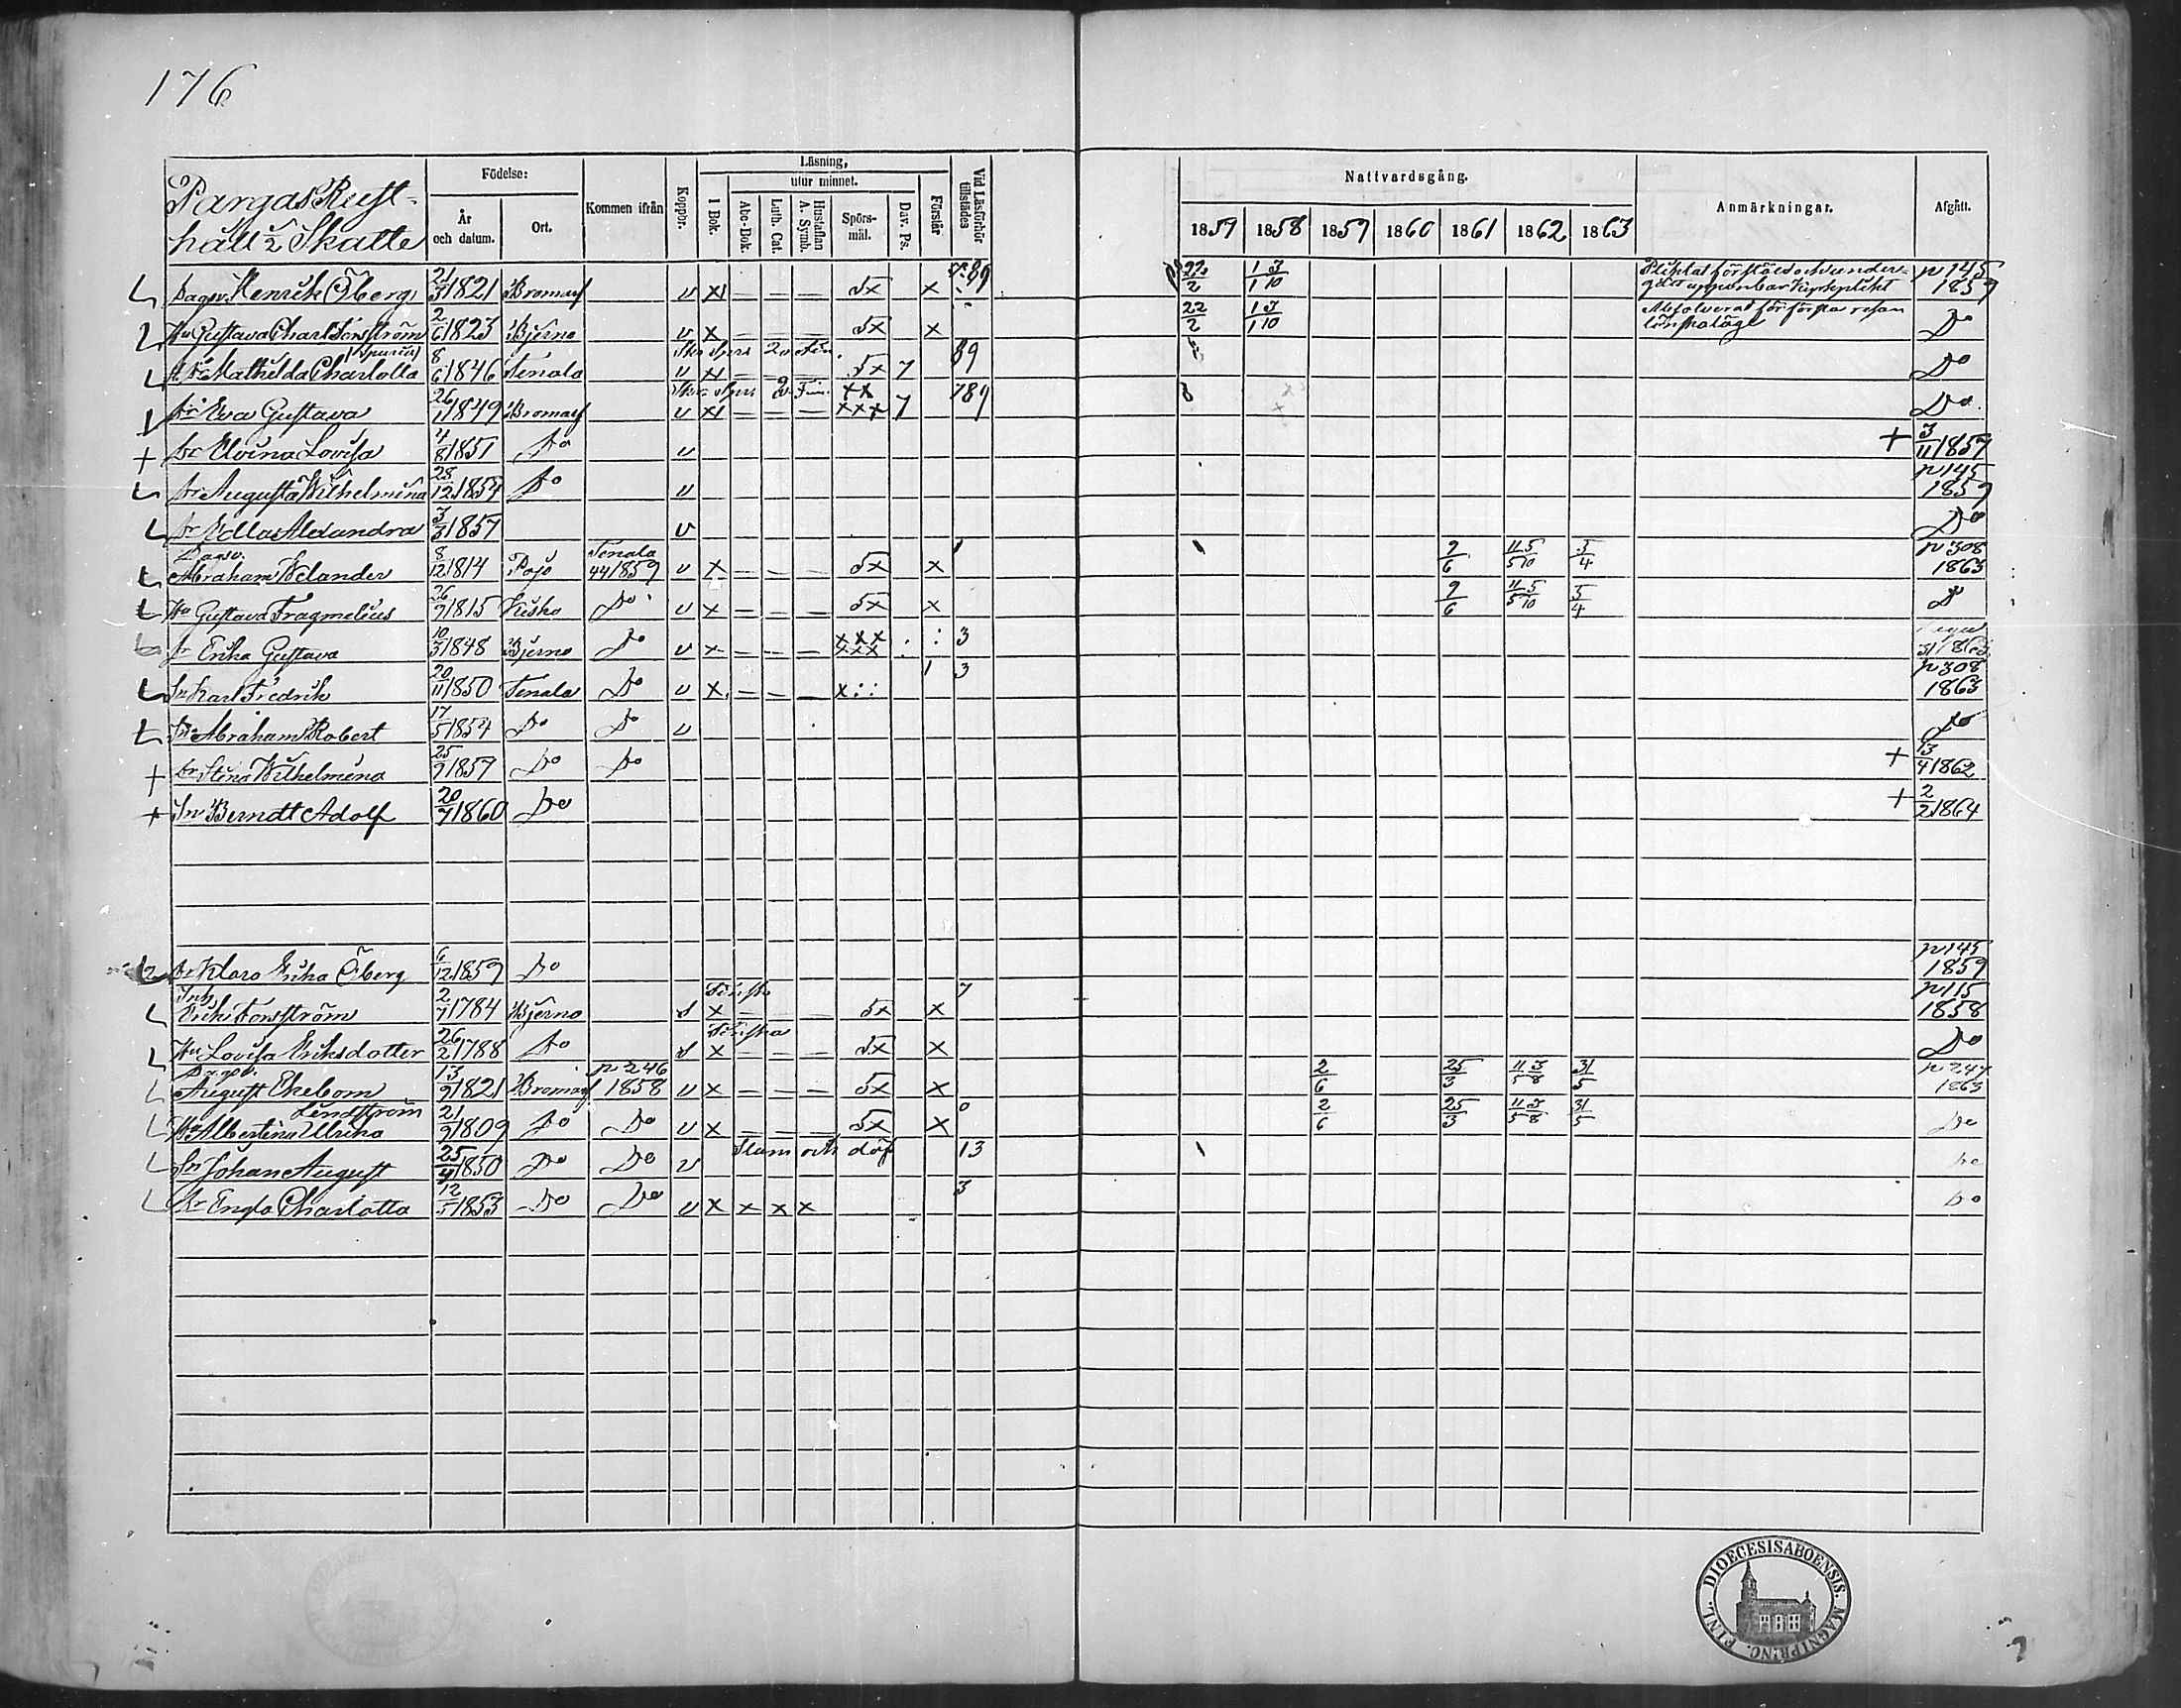 176
Pargas Rust-
håll 1/2 Skatte
Födelse:
År och datum.
Ort.
Kommen ifrån
Koppor.
Läsning,
utur minnet.
I Bok.
Abc-Bok.
Luth. Cat.
Hustaflan A. Symb.
Spörs-mål.
Dav. Ps.
Förstår
Vid Läsförhör tillstädes
Nattvardsgång.
1857 1858 1859 1860 1861 1862 1863
Anmärkningar.
Afgått.
Henrik Öberg 21/3 1821 Bromarf v x — — — 5x x 22/2 1/1 3/10 p 145 1859
Hu Gustava Charl. Forsström 2/6 1823 Bjerno v x — — — 5x x 22/2 1/1 3/10 Do
Mathilda Charlotta (spuria) 8/6 1846 Tenala v x 5x 7 89 Do
Dr Eva Gustava 26/1 1849 Bromarf v x — — — xx xxx 7 789 Do
+ Dr Elvina Lovisa 4/8 1851 Do v + 3/11 1857
Dr Augusta Wilhelmina 28/12 1854 Do v p 145 1859
Dr Edla Alexandra 3/3 1857 v Do
Abraham Welander 8/12 1814 Pojo Tenala 44 1859 v x — — — 5x x 9/6 11/5 5/10 5/4 p 308 1863
Hu Gustava Fragmelius 26/9 1815 Kisko Do v x — — — 5x x 9/6 11/5 5/10 5/4 D
Dr Erika Gustava 10/3 1848 Bjerno Do v x — — — xxx xxx 3
Sn Karl Fredrik 20/11 1850 Tenala Do v x — — — x 1 3 p 308 1863
Sn Abraham Robert 17/5 1854 Do Do v Do
+ Dr Stina Wilhelmina 25/9 1857 Do Do + 13/4 1862
+ Sn Berndt Adolf 20/7 1860 Do + 2/2 1864
Dr Klara Erika Öberg 6/12 1859 Do p 145 1859
Inh
Erik Forsström 2/7 1784 Bjerno Finska x — — — 5x x 7 p 115 1858
Hu Lovisa Eriksdotter 26/2 1788 Do Finska x — — — 5x x Do
August Ekebom 13/9 1821 Bromarf p 246 1858 v x — — — 5x x 2/6 25/3 11/5 3/8 31/5 p 247 1863
Hu Albertina Ulrika Lindström 21/9 1809 Do Do v x — — — 5x x 0 2/6 25/3 11/5 3/8 31/5 Do
Sn Johan August 25/4 1850 Do Do v Stum och döf 13 Do
Dr Engla Charlotta 12/5 1853 Do Do v x x x x 3 Do
DIOECESIS ABOENSIS. MAGNI PRINC. FINL.